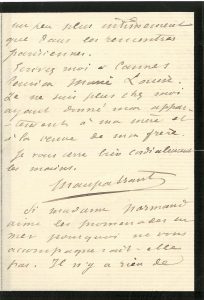 un peu plus intimement
que dans les rencontres
parisiennes.
Ecrivez moi à Cannes
Pension Marie Louise
Je ne suis plus chez moi
ayant donné mon appar-
tement à ma mère et
à la veuve de mon frère.
Je vous serre bien cordialement
les mains.
Maupassant
Si madame Normand
aime les promenades en
mer pourquoi ne vous
accompagnerait-elle
pas. Il n'y a rien de